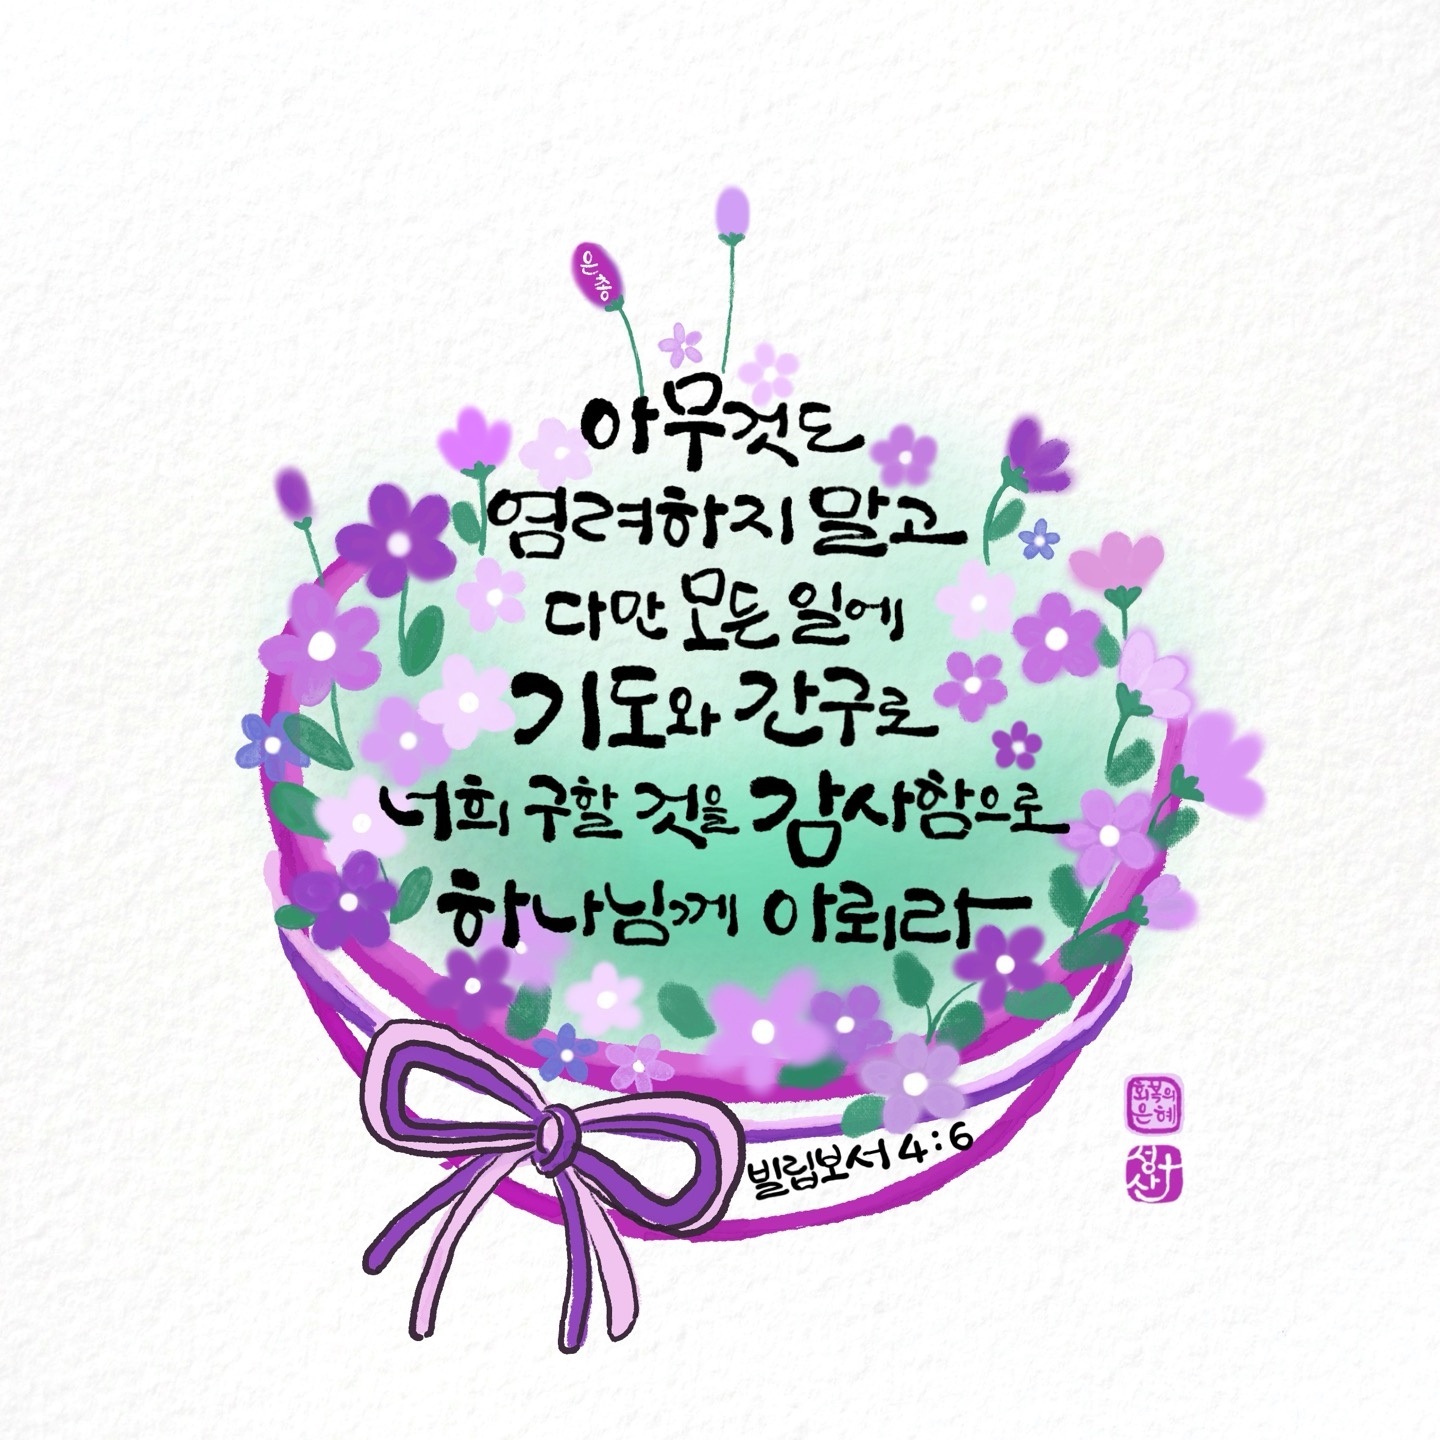 은정
아무것도
염려하지 말고
다만 모든 일에
기도와 간구로
너희 구할 것을 감사함으로
하나님께 아뢰라
빌립보서 4:6
회복의
은혜
성산